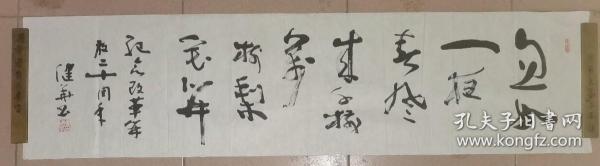 忽如
一夜
春风
来千树
万
树梨
花开
纪念改革开
放二十周年
建华书
孔夫子旧书网
www.kongfz.com